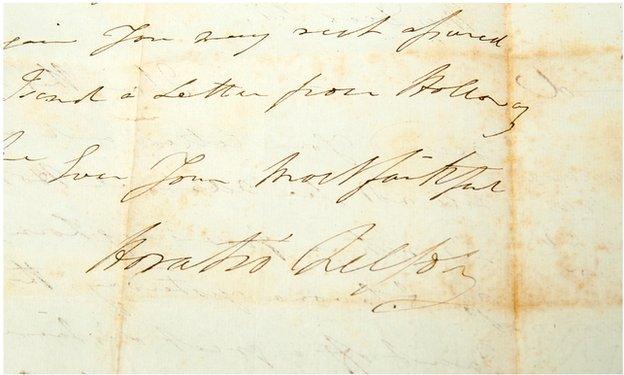 again You may rest assured
I send a Letter from Holloway
Ever Your Most faithful
Horatio Nelson